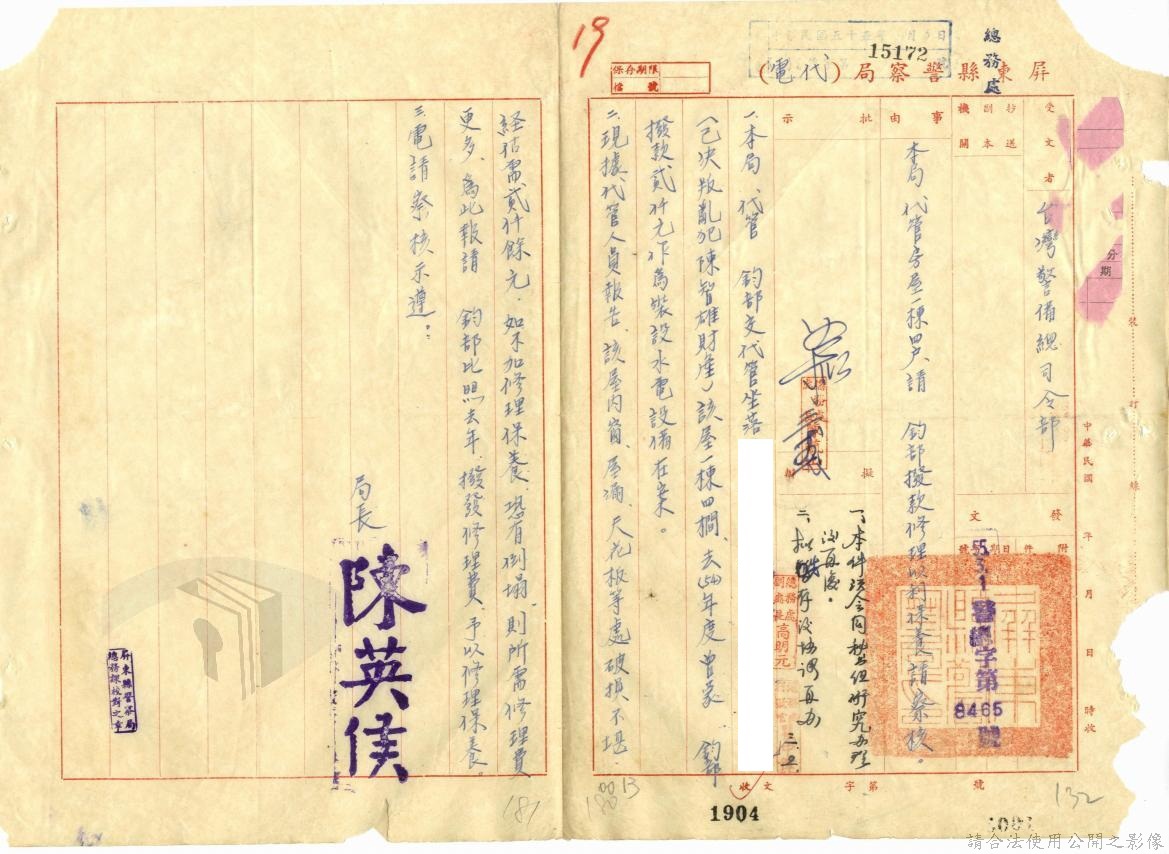 19
15172
總務處
屏東縣警察局(代電)
保存期限
檔號
受文者
台灣警備總司令部
抄送副本機關
事由
本局代管房屋一棟四戶請 鈞部撥款修理以利保養請察核。
批示
擬辦
一、本件須會同秘書但研究辦理
後再處。
發文
附件
日期
字號
55.3.1
警總字第
8465
號
中華民國 年 月 日 時收
裝 訂 線
分期
總務處
副處長 高明元
一、本局代管 鈞部交代管坐落
(已決叛亂犯陳智雄財產)該屋一棟四間、去(54)年度曾蒙 鈞部
撥款貳仟元作為裝設水電設備在案。
二、現據代管人員報告、該屋內窗、屋頂、天花板等處破損不堪.
経估需貳仟餘元.如不加修理保養、恐有倒塌、則所需修理費
更多、為此報請 鈞部比照去年、撥發修理費予以修理保養。
三、電請察核示遵。
局長
陳英俟
屏東縣警察局
總務課校對之章
收文 字第 號
1904
187
180
13
132
請合法使用公開之影像